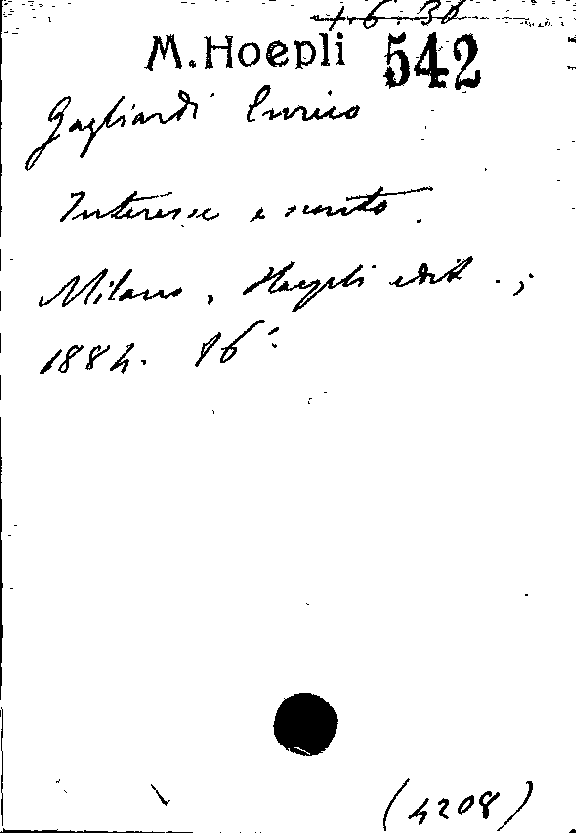 4.6.36
M. Hoepli 542
Gagliardi Enrico
Interesse e sconto.
Milano, Hoepli edit.;
1884. 16º
(4208)